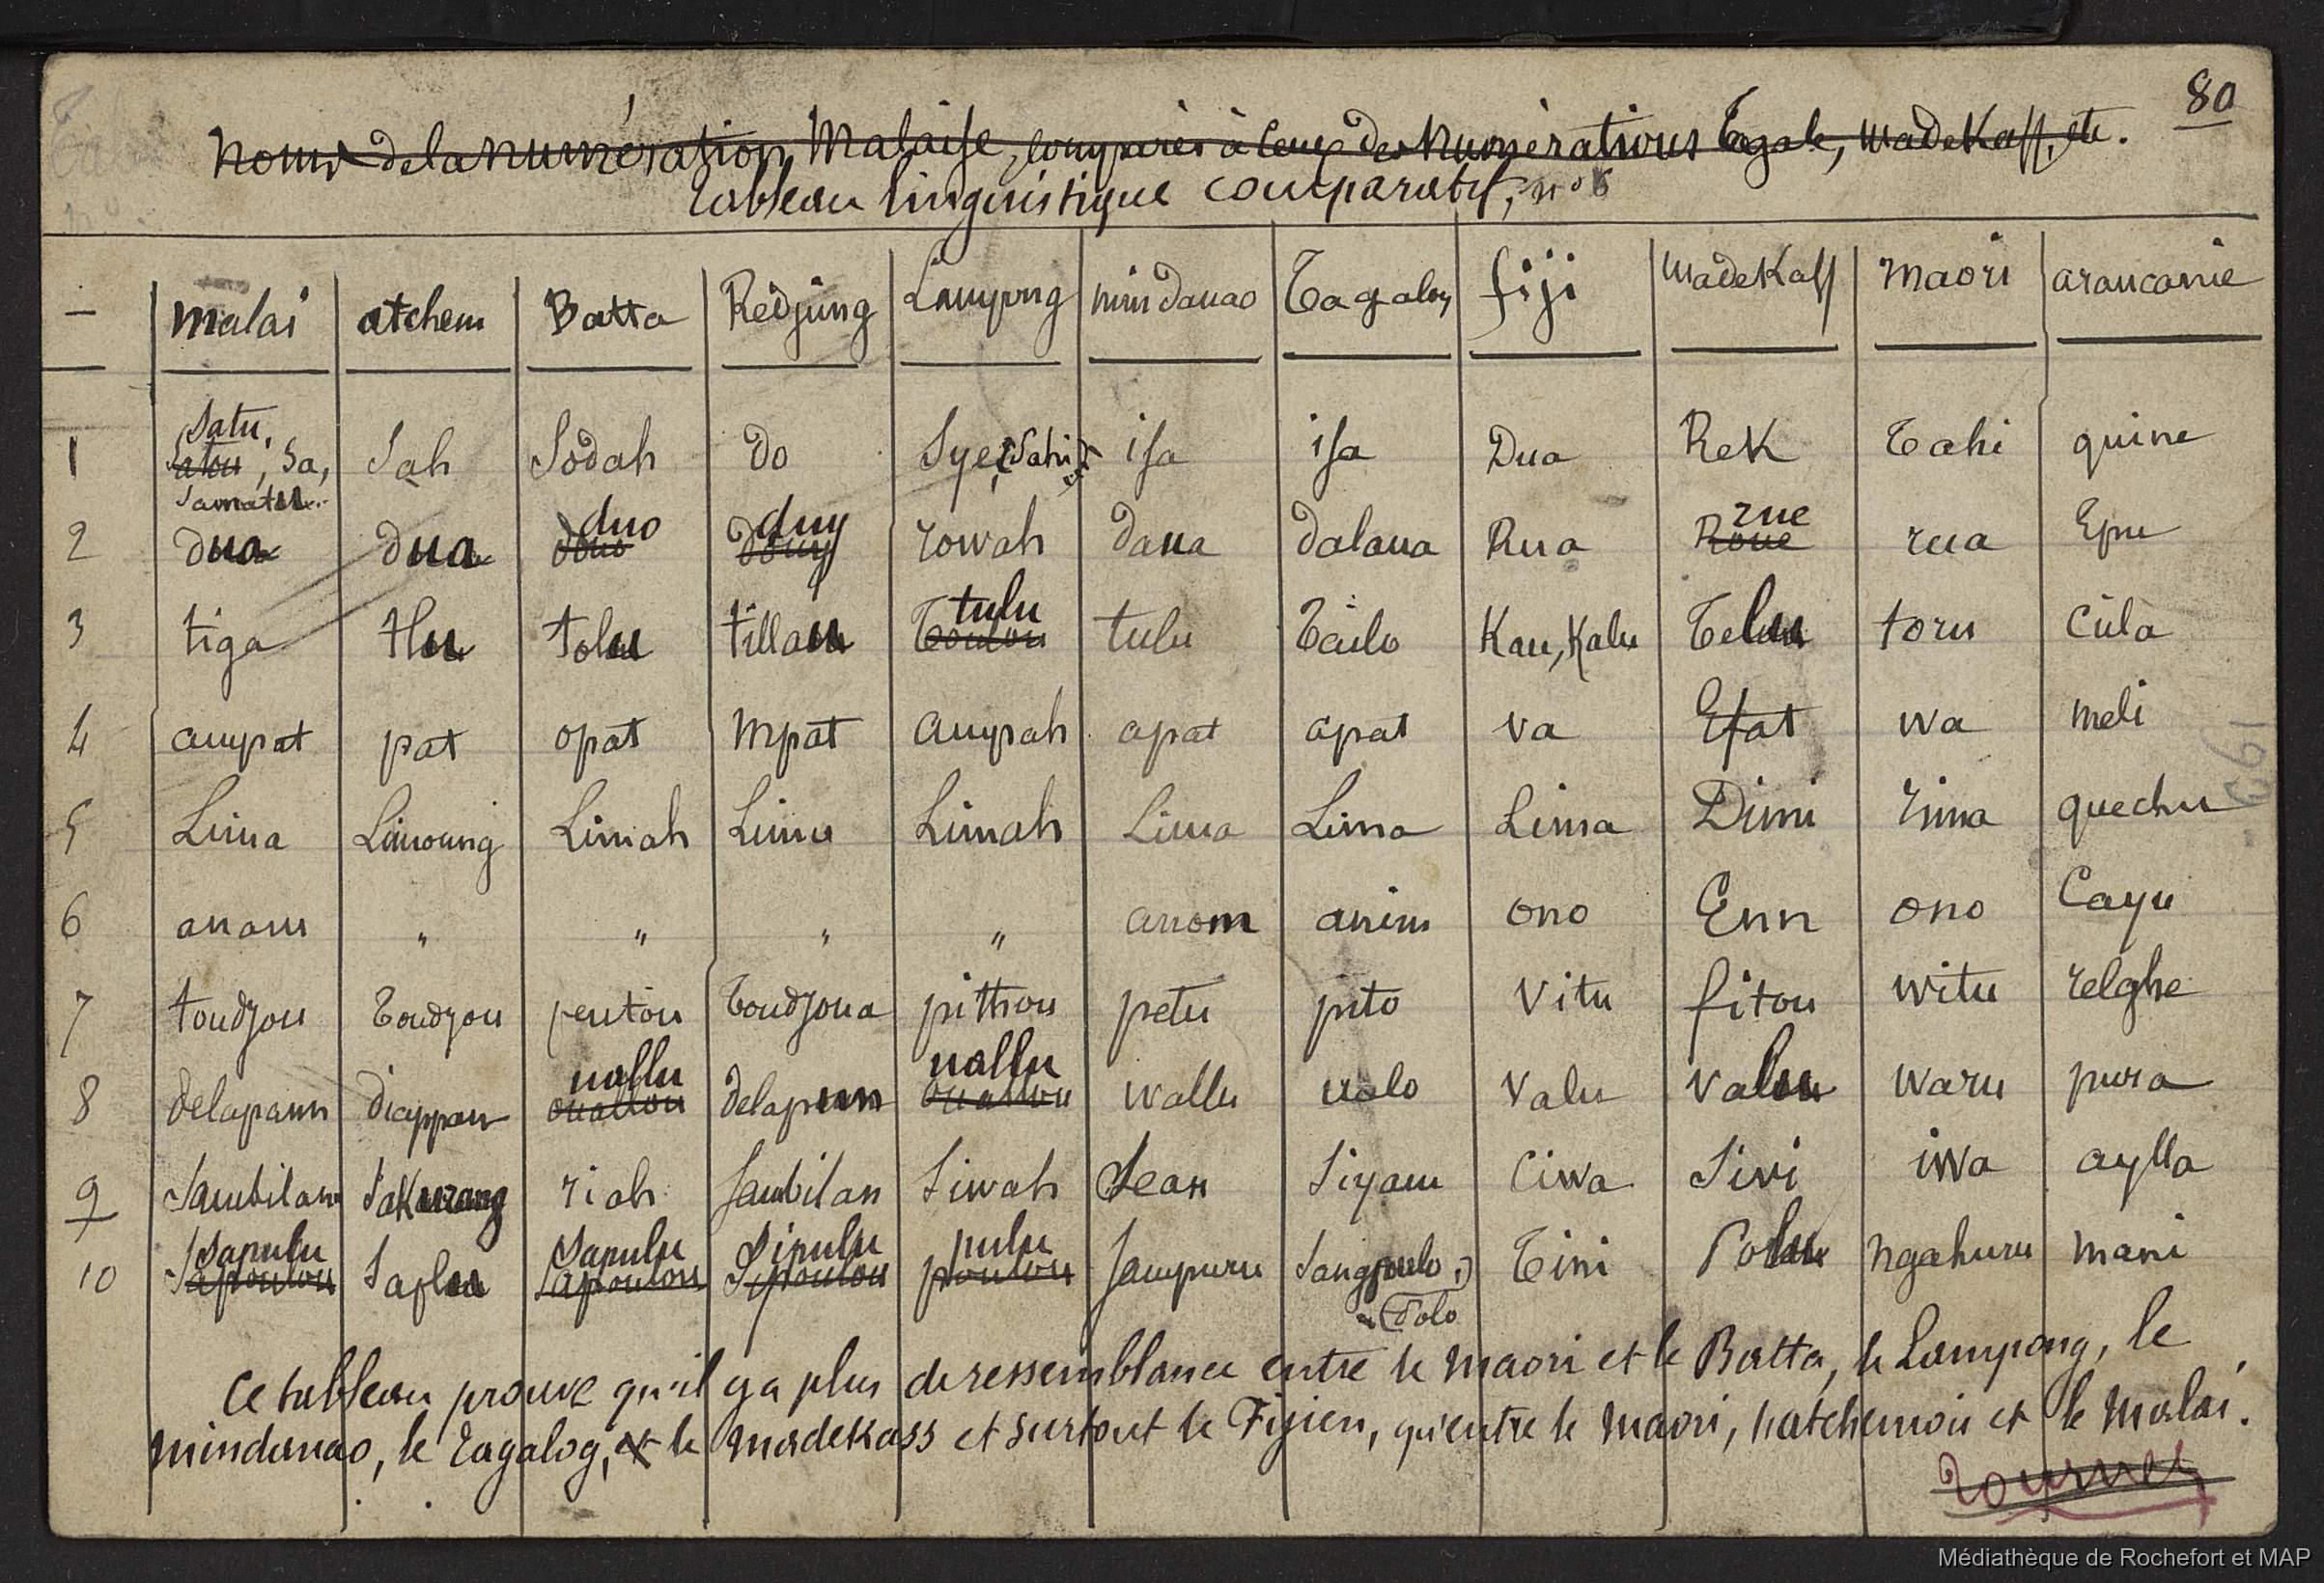 80
Noms de la numération Malaise, comparés à ceux des numérations Tagale, Madekass, etc.
Tableau linguistique comparatif, n° 8
— malai atchem Batta Redjung Lampong mindanao Tagalog fiji madekass maori araucanie
Satu,
1 Satou, Sa, Sah Sodah Do Sye, (Sahi) isa isa Dua Rek Tahi quine
Samatu
duo duy rue
2 dua dua douo douy rowah daua dalaua Rua Roue rua Epu
tulu
3 tiga tlu tolu tillau Toulou tulu Tailo Kau, Kalu Telu toru Cula
4 ampat pat opat mpat ampah apat apat va Efat wa meli
5 Lima Limoung Limah Limo Limah Lima Lima Lima Dimi rima quechu
6 anam " " " " anom anim ono Enn ono Cayu
7 toudjou Toudjou peutou Toudjoua pittou petu pito Vitu fitou witu relghe
uallu uallu
8 delapann diappan ouallou delapunn ouallou wallu ualo Valu Valu waru pura
9 Sambilann Sakurang riah Sambilan Siwah Sean Siyam Ciwa Sivi iwa aylla
Sapulu Sapulu Sipulu pulu
10 Sapoulou Saplu Sapoulou Sipoulou poulou Sampuru Sangpoulo Tini Polu Ngahuru mari
(Polo
Ce tableau prouve qu'il y a plus de ressemblance entre le maori et le Batta, le Lampong, le
mindanao, le Tagalog, et le madekass et surtout le Fijien, qu'entre le maori, l'atchemois et le malai.
Tournez
1992
Médiathèque de Rochefort et MAP